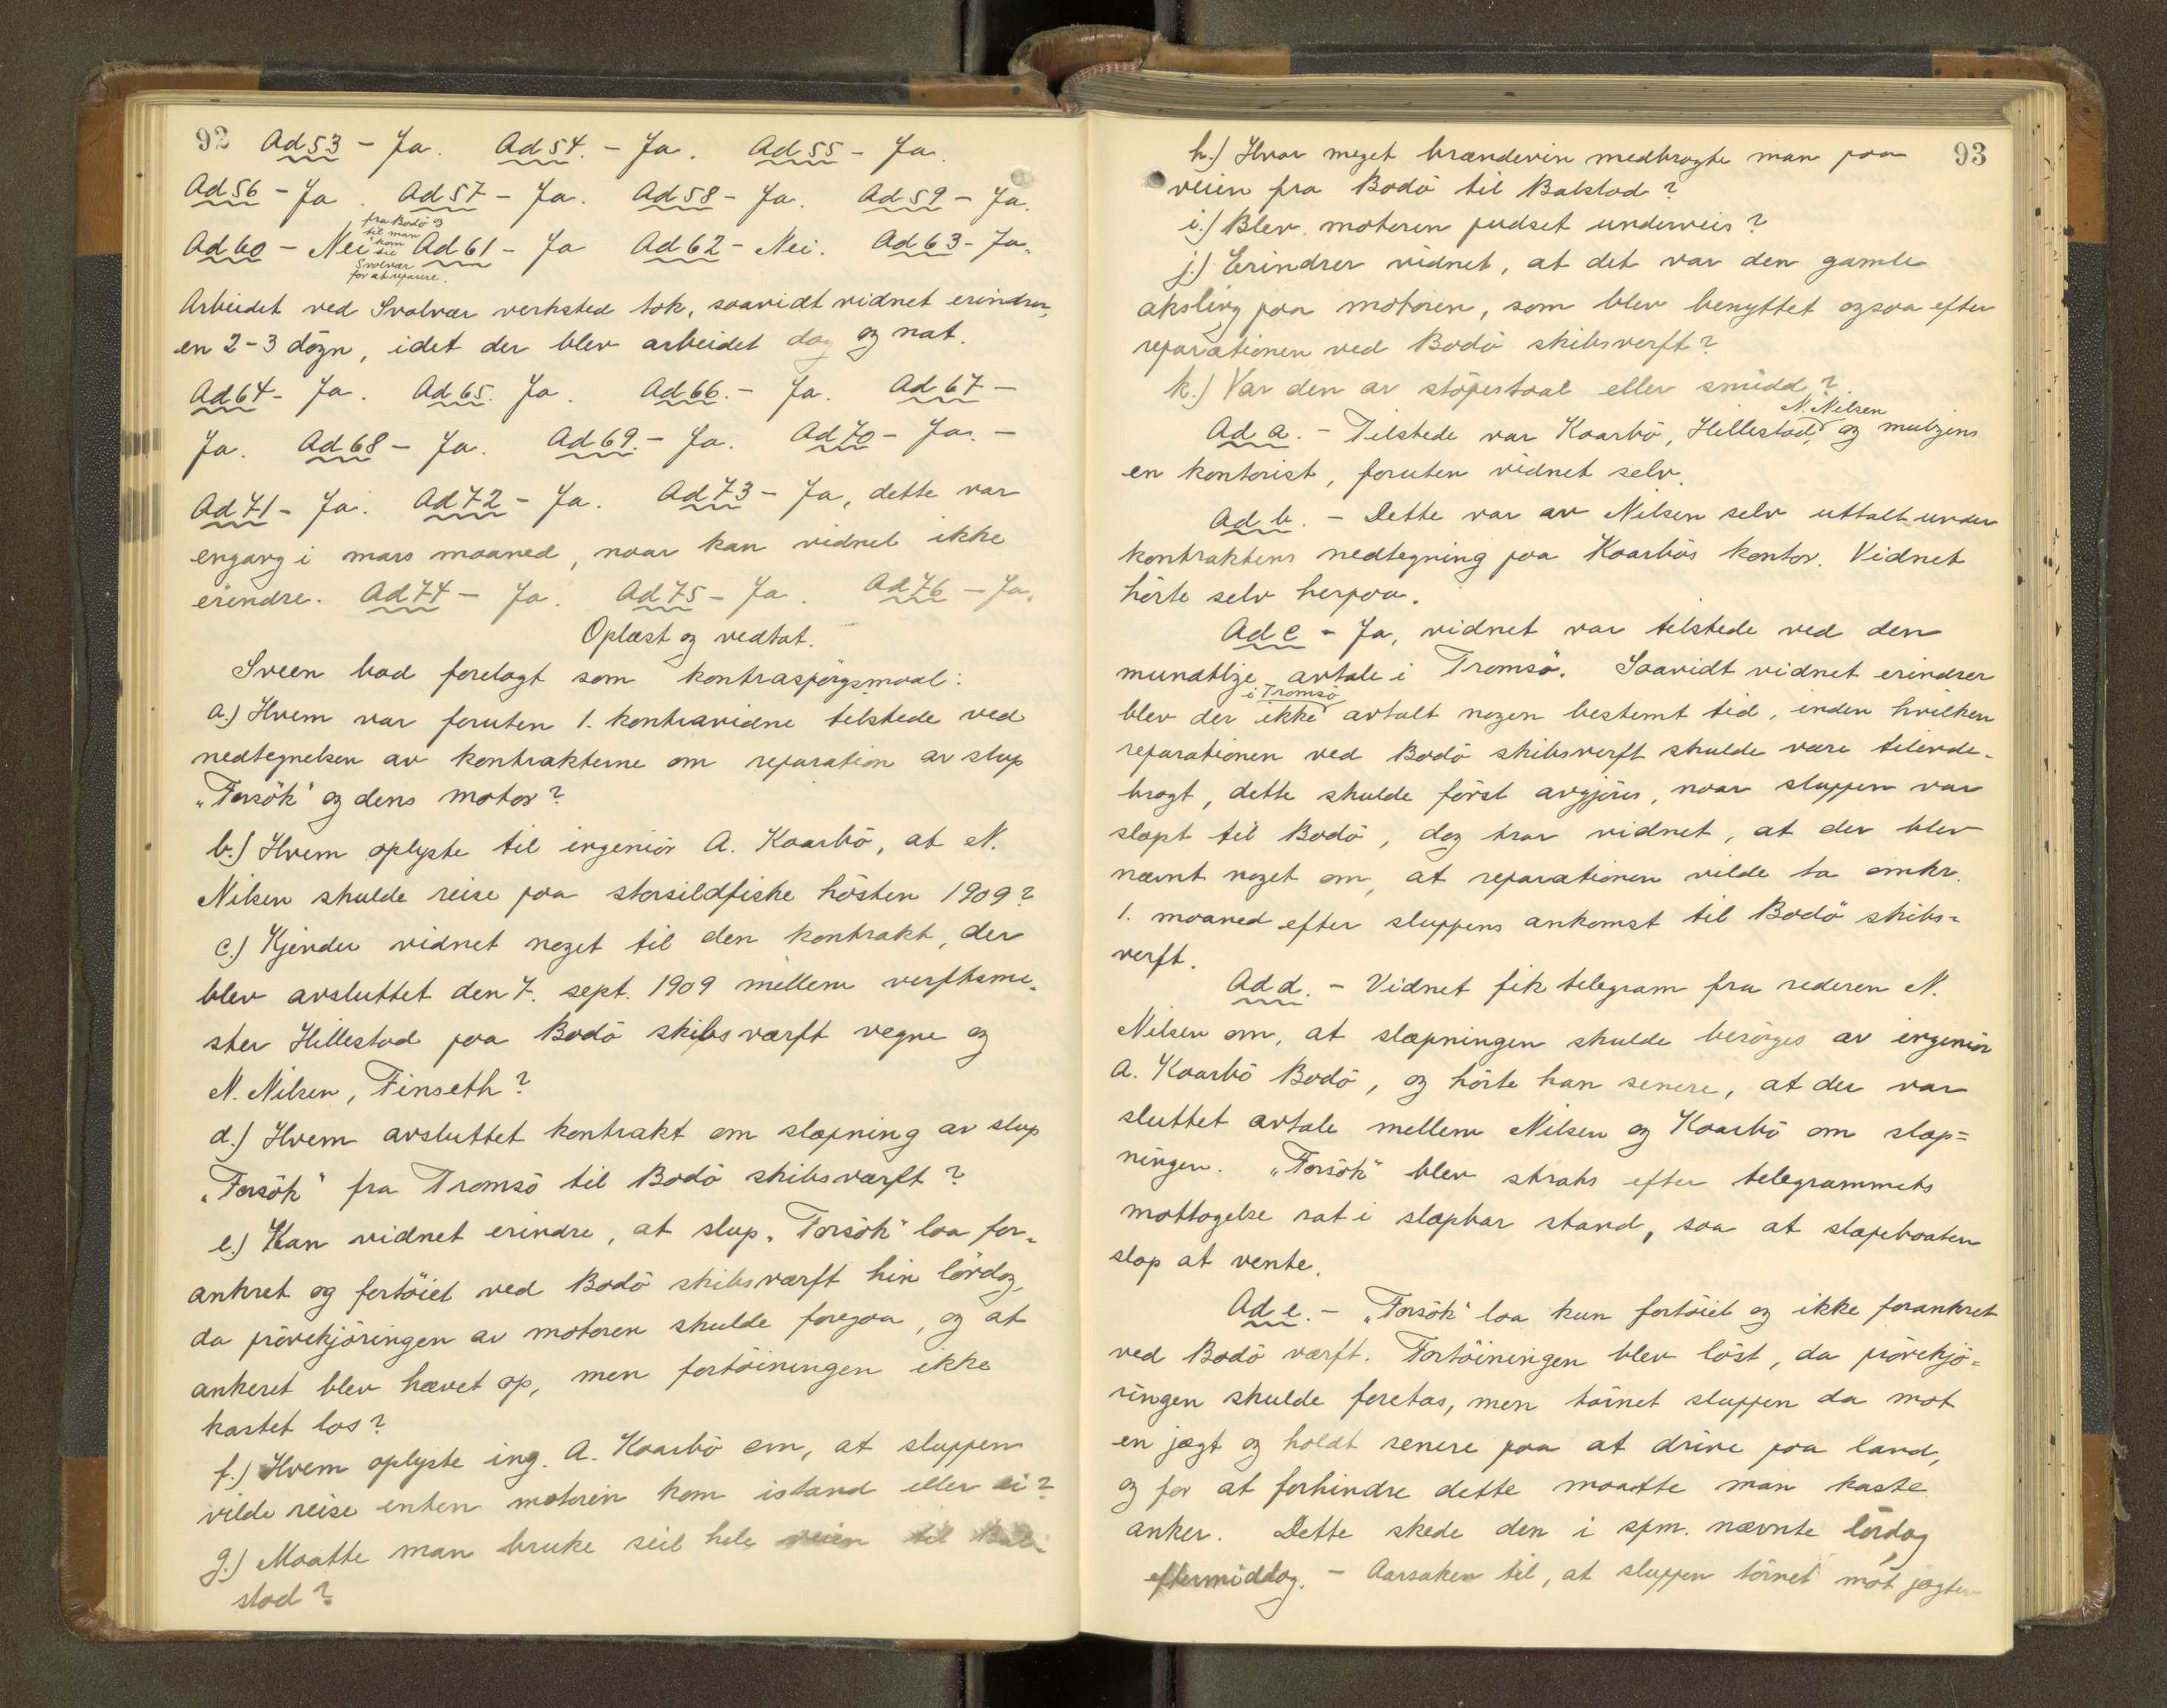 92 Ad 53 - Ja. Ad 54. - Ja. Ad 55 - Ja.
Ad 56 - Ja. Ad 57 - Ja. Ad 58 - Ja. Ad 59 - Ja.
fra Bodö og
til man
kom
til
Svolvær
for at reparere.
Ad 60 - Nei Ad 61 - Ja Ad 62 - Nei. Ad 63 - Ja.
Arbeidet ved Svolvær verksted tok, saavidt vidnet erindrer,
en 2-3 dögn, idet der blev arbeidet dag og nat.
Ad 64 - Ja. Ad 65. Ja. Ad 66. - Ja. Ad 67 -
Ja. Ad 68 - Ja. Ad 69. - Ja. Ad 70 - Ja. -
Ad 71 - Ja. Ad 72 - Ja. Ad 73 - Ja, dette var
engang i mars maaned, naar kan vidnet ikke
erindre. Ad 74 - Ja. Ad 75 - Ja. Ad 76 - Ja.
Oplæst og vedtat.
Sveen bad forelagt som kontraspörgsmaal:
a.) Hvem var foruten 1. kontravidne tilstede ved
nedtegnelsen av kontrakterne om reparation av slup
„Forsök" og dens motor?
b.) Hvem oplyste til ingeniör A. Kaarbö, at N.
Nilsen skulde reise paa storsildfiske hösten 1909?
c.) Kjender vidnet noget til den kontrakt, der
blev avsluttet den 7. sept. 1909 mellem verftsme-
ster Hillestad paa Bodö skibsværft vegne og
N. Nilsen, Finseth?
d.) Hvem avsluttet kontrakt om slæpning av slup
„Forsök" fra Tromsö til Bodö skibsværft?
e.) Kan vidnet erindre, at slup „Forsök" laa for-
ankret og fortöiet ved Bodö skibsværft hin lördag,
da prövekjöringen av motoren skulde foregaa, og at
ankeret blev hævet op, men fortöiningen ikke
kastet los?
f.) Hvem oplyste ing. A. Kaarbö om, at sluppen
vilde reise enten motoren kom istand eller ei?
g.) Maatte man bruke seil hele veien til Bal-
stad?
h.) Hvor meget brændevin medbragte man paa 93
veien fra Bodö til Balstad?
i.) Blev motoren pudset underveis?
j.) Erindrer vidnet, at det var den gamle
aksling paa motoren, som blev benyttet ogsaa efter
reparationen ved Bodö skibsverft?
k.) Var den av stöpestaal eller smidd?
N. Nilsen
Ad a. - Tilstede var Kaarbö, Hillestad, og muligens
en kontorist, foruten vidnet selv.
Ad b. - Dette var av Nilsen selv uttalt under
kontraktens nedtegning paa Kaarbös kontor. Vidnet
hörte selv herpaa.
Ad c - Ja, vidnet var tilstede ved den
mundtlige avtale i Tromsö. Saavidt vidnet erindrer
i Tromsö
blev der ikke avtalt nogen bestemt tid, inden hvilken
reparationen ved Bodö skibsverft skulde være tilende-
bragt, dette skulde först avgjöres, naar sluppen var
slæpt til Bodö, dog tror vidnet, at der blev
nævnt noget om, at reparationen vilde ta omkr.
1. maaned efter sluppens ankomst til Bodö skibs-
verft.
Ad d. - Vidnet fik telegram fra rederen N.
Nilsen om, at slæpningen skulde besörges av ingeniör
A. Kaarbö Bodö, og hörte han senere, at der var
sluttet avtale mellem Nilsen og Kaarbö om slæp-
ningen. „Forsök" blev straks efter telegrammets
mottagelse sat i slæpbar stand, saa at slæpebaaten
slap at vente.
Ad e. - „Forsök" laa kun fortöiet og ikke forankret
ved Bodö værft. Fortöiningen blev löst, da prövekjö-
ringen skulde foretas, men törnet sluppen da mot
en jægt og holdt senere paa at drive paa land,
og for at forhindre dette maatte man kaste
anker. Dette skede den i spm. nævnte lördag
eftermiddag. - Aarsaken til, at sluppen törnet mot jægten